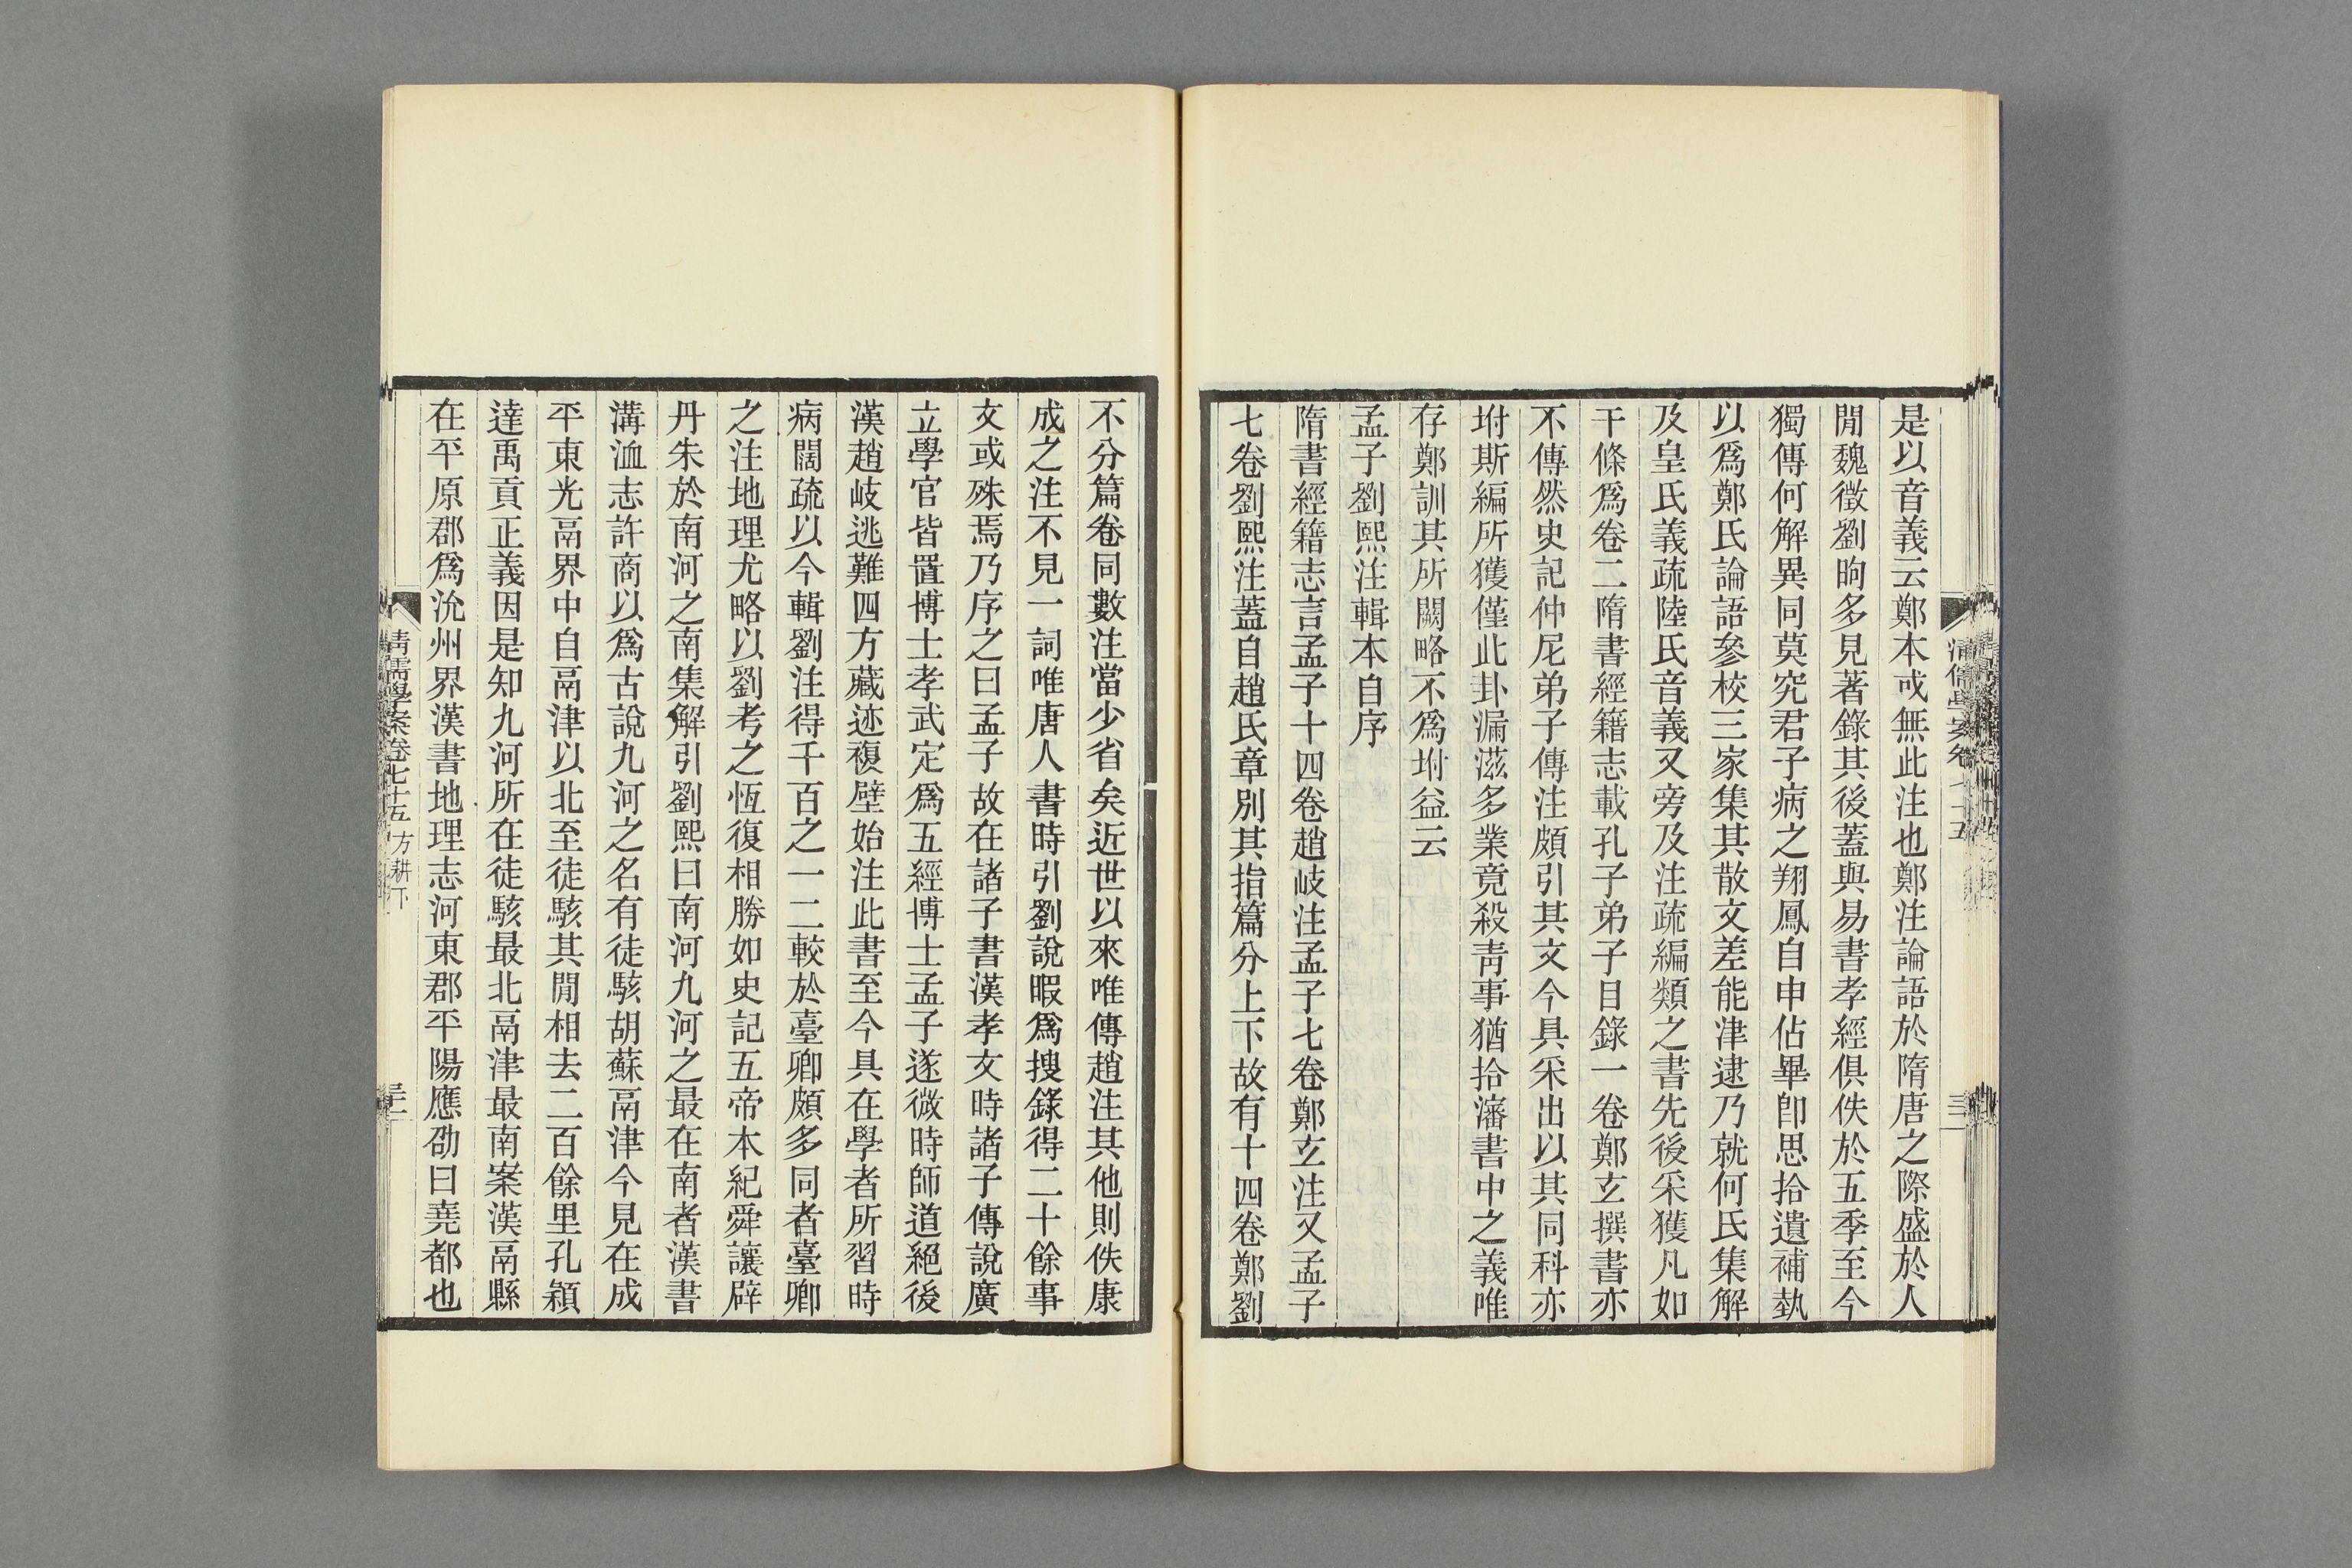 是以音義云鄭本或無此注也鄭注論語於隋唐之際盛於人
閒魏徵劉昫多見著錄其後蓋與易書孝經俱佚於五季至今
獨傳何解異同莫究君子病之翔鳳自申佔畢卽思拾遺補蓺
以爲鄭氏論語參校三家集其散文差能津逮乃就何氏集解
及皇氏義疏陸氏音義又旁及注疏編類之書先後采獲凡如
干條爲卷二隋書經籍志載孔子弟子目錄一卷鄭玄撰書亦
不傳然史記仲尼弟子傳注頗引其文今具采出以其同科亦
坿斯編所獲僅此卦漏滋多業竟殺靑事猶拾瀋書中之義唯
存鄭訓其所闕略不爲坿益云
孟子劉熙注輯本自序
隋書經籍志言孟子十四卷趙岐注孟子七卷鄭玄注又孟子
七卷劉熙注蓋自趙氏章別其指篇分上下故有十四卷鄭劉
不分篇卷同數注當少省矣近世以來唯傳趙注其他則佚康
成之注不見一詞唯唐人書時引劉說暇爲搜錄得二十餘事
文或殊焉乃序之曰孟子故在諸子書漢孝文時諸子傳說廣
立學官皆置博士孝武定爲五經博士孟子遂微時師道絕後
漢趙岐逃難四方藏迹複壁始注此書至今具在學者所習時
病闊疏以今輯劉注得千百之一二較於臺卿頗多同者臺卿
之注地理尤略以劉考之恆復相勝如史記五帝本紀舜讓辟
丹朱於南河之南集解引劉熙曰南河九河之最在南者漢書
溝洫志許商以爲古說九河之名有徒駭胡蘇鬲津今見在成
平東光鬲界中自鬲津以北至徒駭其閒相去二百餘里孔穎
達禹貢正義因是知九河所在徒駭最北鬲津最南案漢鬲縣
在平原郡爲沇州界漢書地理志河東郡平陽應劭曰堯都也
清儒學案卷七十五 方耕下